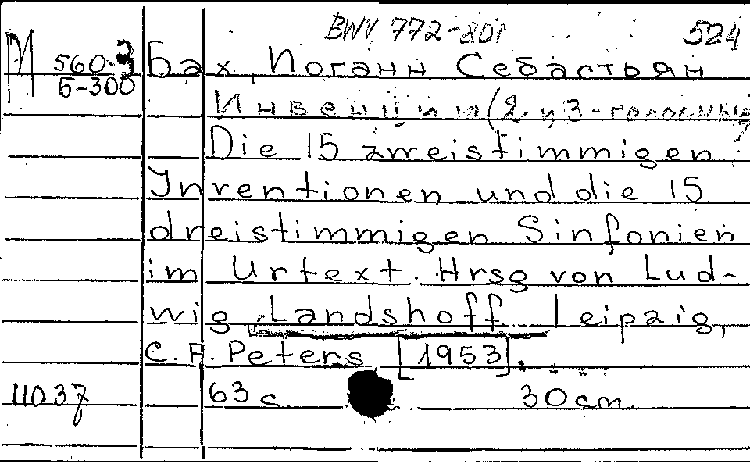 BWV 772-801 524
М 560-3 Бах, Иоганн Себастьян
Б-300
Инвенции (2 и 3-голосные)
Die 15 zweistimmigen
Inventionen und die 15
dreistimmigen Sinfonien
im Urtext. Hrsg von Lud-
wig Landshoff Leipzig,
C. F. Peters [1953].
11037 63 с. 30 cm.